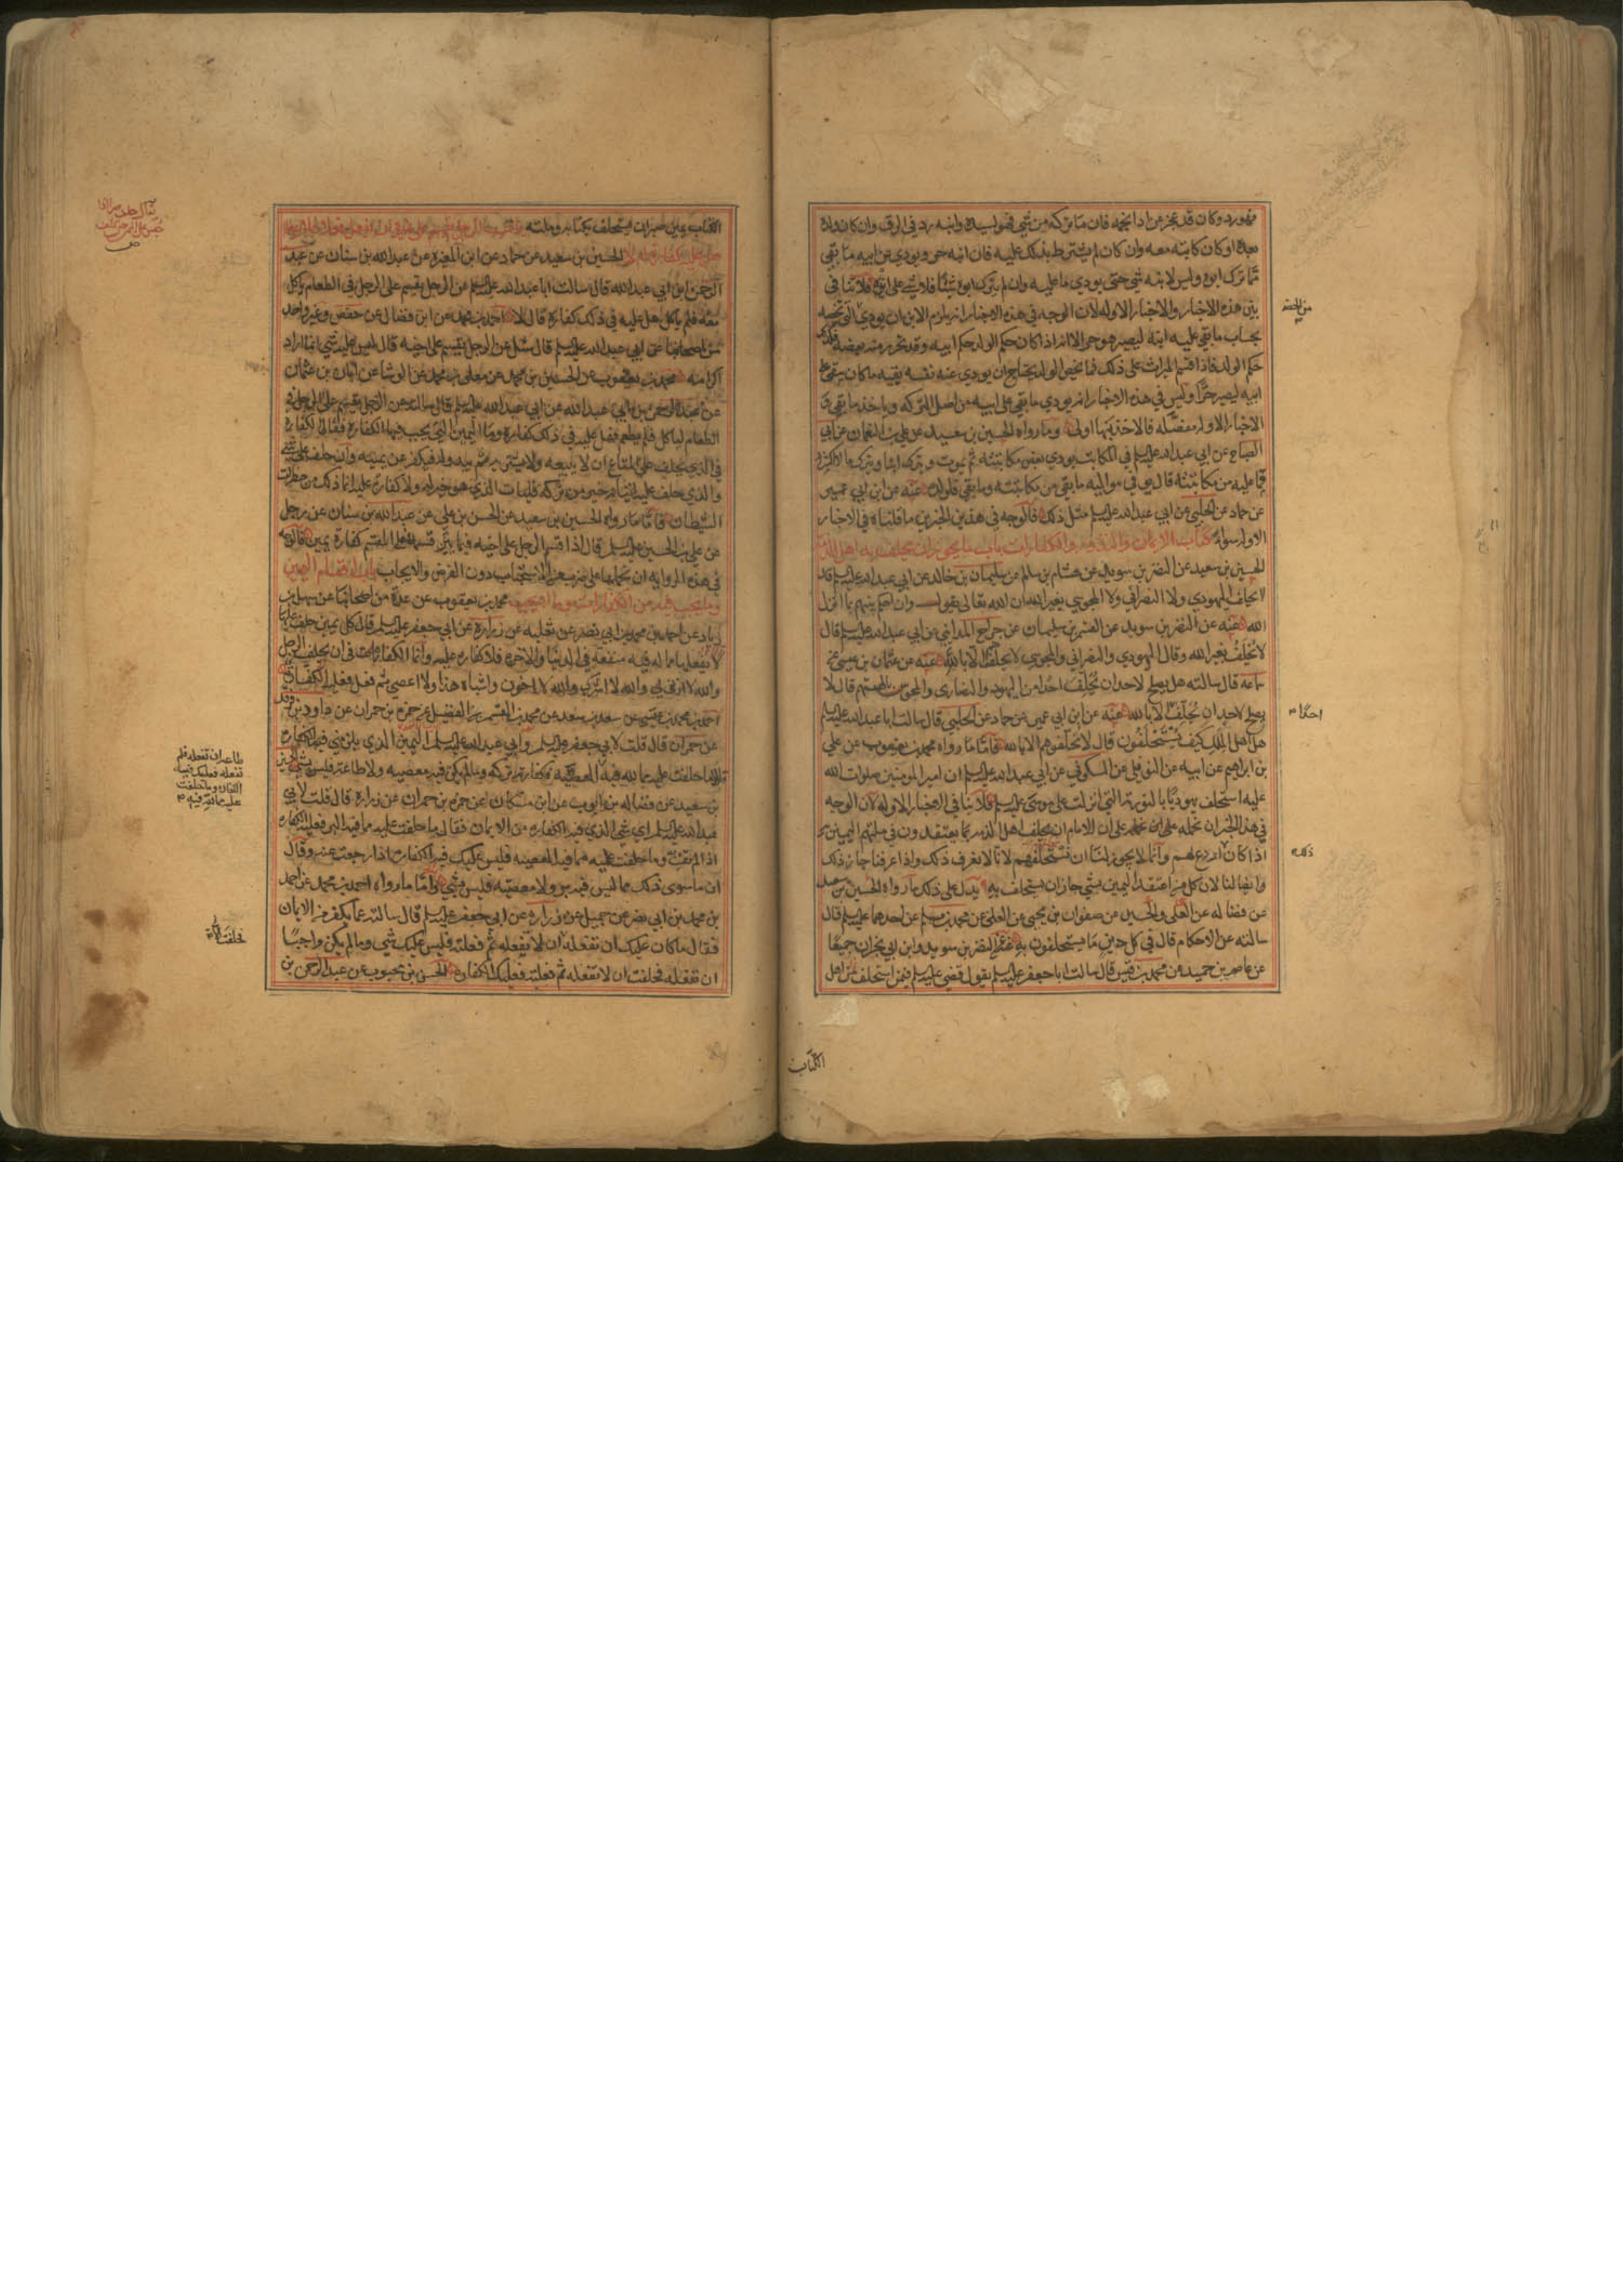 فهو رد وكان قد عجز عن اداء نجمه فان ما ترك من شي فهو لسيده وابنه رد في الرق وان كان ولده
بعده او كان كاتبه معه وان كان لم يشترط ذلك عليه فان ابنه حر ويودي عن ابيه ما بقي
مما ترك ابوه وليس لابنه شي حتى يودي ما عليه وان لم يترك ابوه شيئا فلا شي على ابنه فلا تنافي
بين هذه الاخبار والاخبار الاوله لان الوجه في هذه الاخبار انه يلزم الابن ان يودي
بحساب ما بقي على ابيه ليصير هو حرا لانه اذا كان حكم الولد حكم ابيه وقد تحرر منه بعضه فكذلك
حكم الولد فاذا قسم الميراث على ذلك فما يخص الولد يحتاج ان يودي عنه نفسه بقيه ما كان بقي على
ابيه ليصير حرا وليس في هذه الاخبار انه يودي ما بقي على ابيه من اصل التركه وياخذ ما يبقى و
الاخبار الاوله مفصله فالاخذ بها اولى وما رواه الحسين بن سعيد عن علي بن النعمان عن ابي
الصباح عن ابي عبد الله عليه السلم في المكاتب يودي بعض مكاتبته ثم يموت ويترك ابنا ويترك مالا اكثر
مما عليه من مكاتبته قال يوفي مواليه ما بقي من مكاتبته وما بقي فلولده عنه عن ابن ابي عمير
عن حماد عن الحلبي عن ابي عبد الله عليه السلم مثل ذلك فالوجه في هذين الخبرين ما قلناه في الاخبار
الاوله سوا كتاب الايمان والنذور والكفارات باب ما يجوز ان يحلف به اهل الذمه
الحسين بن سعيد عن النضر بن سويد عن هشام بن سالم عن سليمان بن خالد عن ابي عبد الله عليه السلم قال
لا يحلف اليهودي ولا النصراني ولا المجوسي بغير الله ان الله تعالى يقول وان احكم بينهم بما انزل
الله عنه عن النضر بن سويد عن القسم بن سليمان عن جراح المدايني عن ابي عبد الله عليه السلم قال
لا تحلف بغير الله وقال اليهودي والنصراني والمجوسي لا تحلفوهم الا بالله عنه عن عثمان بن عيسى عن
سماعه قال سالته هل يصلح لاحد ان تحلف احدا من اليهود والنصارى والمجوس بالهتهم قال لا
يصلح لاحد ان يحلف الا بالله عنه عن ابن ابي عمير عن حماد عن الحلبي قال سالت ابا عبد الله عليه السلم
هل اهل الملل كيف تستحلفون قال لا تحلفوهم الا بالله فاما ما رواه محمد بن يعقوب عن علي
بن ابراهيم عن ابيه عن النوفلي عن السكوني عن ابي عبد الله عليه السلم ان امير المومنين صلوات الله
عليه استحلف يهوديا بالتوريه التي انزلت على موسى عليه السلم فلا ينافي الاخبار الاوله لان الوجه
في هذا الخبر ان نحمله على ان الامام ان يحلف اهل الذمه بما يعتقدون في ملتهم اليمين به
اذا كان اردع لهم وانما لا يجوز لنا ان نستحلفهم لانا لا نعرف ذلك واذا عرفنا جاز ذلك
وايضا لنا لان كل من اعتقد اليمين بشي جاز ان يستحلف به يدل على ذلك ما رواه الحسين بن سعيد
عن فضاله عن العلى والحسين عن صفوان بن يحيى عن العلى عن محمد بن مسلم عن احدهما عليه السلم قال
سالته عن الاحكام قال في كل دين ما يستحلفون به عنه عن النضر بن سويد وابن ابي نجران جميعا
عن عاصم بن حميد عن محمد بن قيس قال سالت ابا جعفر عليه السلم يقول قضى علي عليه السلم فيمن استحلف من اهل
احدا
ذلك
الكتاب
الكتاب بيمين صبر ان يستحلف بكتابه وملته
الحسين بن سعيد عن حماد عن ابن المغيره عن عبد الله بن سنان عن عبد
الرحمن ابن ابي عبد الله قال سالت ابا عبد الله عليه السلم عن الرجل يقسم على الرجل في الطعام ياكل
معه فلم ياكل هل عليه في ذلك كفارة قال لا احمد بن محمد عن ابن فضال عن حفص وغير واحد
من اصحابنا عن ابي عبد الله عليه السلم قال سئل عن الرجل يقسم على اخيه قال ليس عليه شي انما اراد
اكرامه محمد بن يعقوب عن الحسين بن محمد عن معلى بن محمد عن الوشا عن ابان بن عثمان
عن عبد الرحمن بن ابي عبد الله عن ابي عبد الله عليه السلم قال سالته عن الرجل يقسم على الرجل في
الطعام لياكل فلم يطعم فهل عليه في ذلك كفارة وما اليمين التي يجب فيها الكفارة فقال الكفارة
في الذي يحلف على المتاع ان لا يبيعه ولا يشتريه ثم يبدو له فيكفر عن يمينه وان حلف على شي
والذي حلف عليه اتيانه خير من تركه فليات الذي هو خير له ولا كفارة عليه انما ذلك من خطوات
الشيطان فاما ما رواه الحسين بن سعيد عن الحسن بن علي عن عبد الله بن سنان عن رجل
عن علي بن الحسين عليه السلم قال اذا اقسم الرجل على اخيه فلم يبر قسمه فعلى المقسم كفارة يمين فالوجه
في هذه الروايه ان نحملها على ضرب من الاستحباب دون الفرض والايجاب باب اقسام اليمين
وما يجب فيه من الكفارات وما لا يجب محمد بن يعقوب عن عدة من اصحابنا عن سهل بن
زياد عن احمد بن محمد بن ابي نصر عن ثعلبه عن زرارة عن ابي جعفر عليه السلم قال كل يمين حلف عليها
لا يفعلها مما له فيه منفعه في الدنيا والاخرة فلا كفاره عليه وانما الكفارة في ان يحلف الرجل
والله لا ازني والله لا اشرب والله لا اخون واشباه هذا ولا اعصي ثم فعل فعليه الكفارة
احمد بن محمد بن عيسى عن سعد بن سعد عن محمد بن القسم بن الفضيل عن حمزه بن حمران عن داود بن فرقد
عن حمران قال قلت لابي جعفر عليه السلم وابي عبد الله عليه السلم اليمين الذي يلزمني فيها الكفاره
بن سعيد عن فضاله بن ايوب عن ابن مسكان عن حمزه بن حمران عن زرارة قال قلت لابي
عبد الله عليه السلم اي شي الذي فيه الكفاره من الايمان فقال ما حلفت عليه مما فيه البر فعليه الكفاره
اذا لم تف به وما حلفت عليه مما فيه المعصيه فليس عليك فيه الكفارة اذا رجعت عنه وقال
ان ما سوى ذلك مما ليس فيه بر ولا معصيه فليس بشي واما ما رواه احمد بن محمد عن احمد
بن محمد بن ابي نصر عن جميل عن زرارة عن ابي جعفر عليه السلم قال سالته عما يكفر من الايمان
فقال ما كان عليك ان تفعله ان لا تفعله ثم فعلته فليس عليك شي وما لم يكن واجبا
ان تفعله فحلفت ان لا تفعله ثم فعلته فعليك الكفارة الحسن بن محبوب عن عبد الرحمن بن
طاعه ان تفعله فلم
تفعله فعليك فيه
الكفارة وما حلفت
عليه مما لله فيه